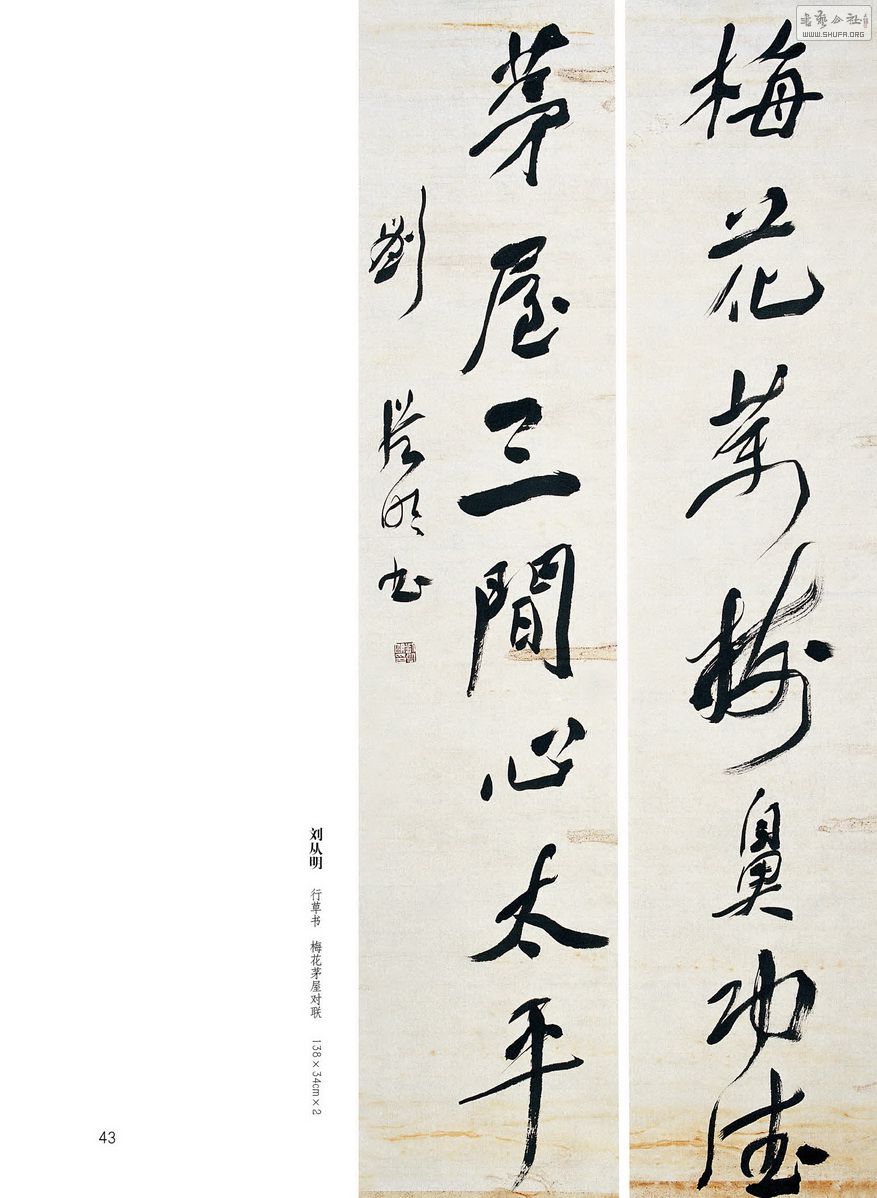 梅花萬樹鼻功德
茅屋三間心太平
劉從明書
刘从明 行草书 梅花茅屋对联 138×34cm×2
43
WWW.SHUFA.ORG